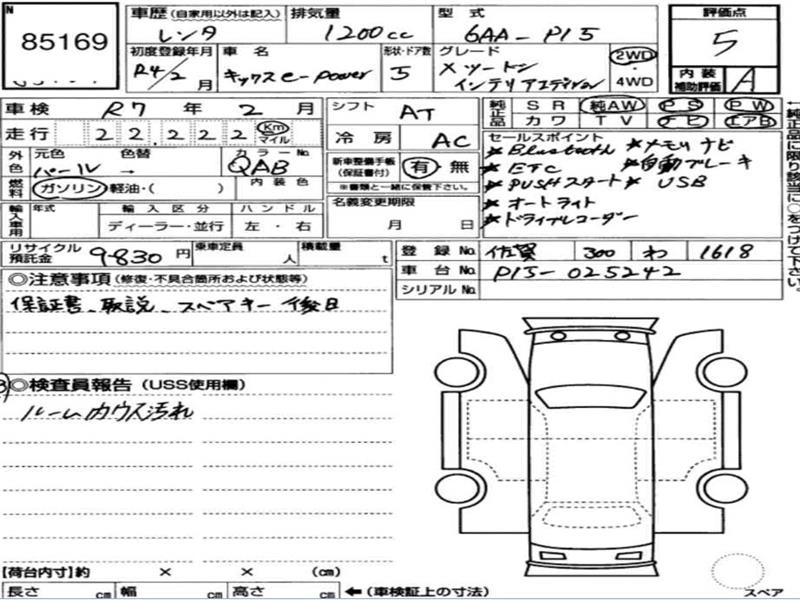 N 85169
車歴 (自家用以外は記入) レンタ
排気量 1200cc
型式 6AA-P15
評価点 5
初度登録年月 R4/2月
車名 キックス e-power
形状・ドア数 5
グレード Xツートン インテリアエディション
2WD
4WD
内装補助評価 A
車検 R7年2月
走行 22,222 Km マイル
シフト AT
冷房 AC
純正品 SR 純AW PS PW
カワ TV ナビ エアB
外色 元色 パール 色替 → カラーNo. QAB
燃料 ガソリン・軽油・( ) 内装色
新車整備手帳 (保証書付) 有 無
※書類と一緒に保管下さい。
セールスポイント
★Bluetooth ★メモリナビ
★ETC ★自動ブレーキ
★PUSHスタート ★USB
★オートライト
★ドライブレコーダー
輸入車用 年式 輸入区分 ディーラー・並行 ハンドル 左・右
名義変更期限 月 日
リサイクル預託金 9830円
乗車定員 人
積載量 t
登録No. 佐賀 300 わ 1618
車台No. P15-025242
シリアルNo.
◎注意事項 (修復・不具合箇所および状態等)
保証書、取説、スペアキー後日
◎検査員報告 (USS使用欄)
ルームカウス汚れ
【荷台内寸】約 × × (cm)
長さ cm 幅 cm 高さ cm ←(車検証上の寸法)
スペア